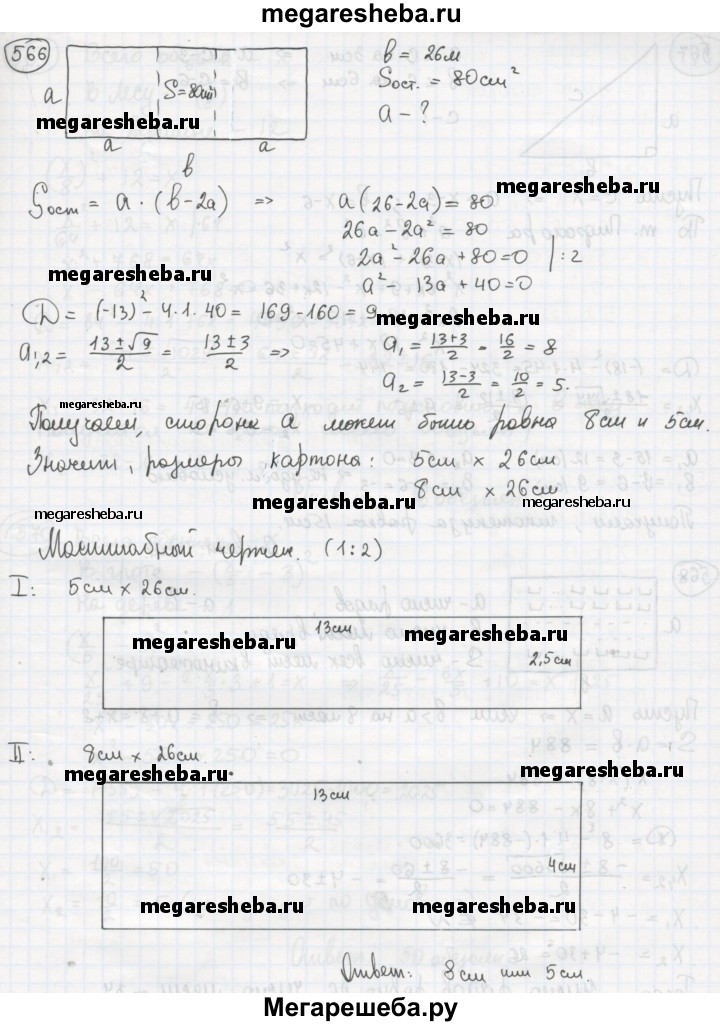 megaresheba.ru
566
a
S=80см²
megaresheba.ru
a
a
в
в = 26м
Sост. = 80см²
a - ?
megaresheba.ru
Sост = a · (в-2a) => a(26-2a) = 80
26a - 2a² = 80
megaresheba.ru
2a² - 26a + 80 = 0 | :2
a² - 13a + 40 = 0
D = (-13)² - 4·1·40 = 169 - 160 = 9
megaresheba.ru
a1,2 = (13±√9)/2 = (13±3)/2 => a₁ = (13+3)/2 = 16/2 = 8
a₂ = (13-3)/2 = 10/2 = 5.
megaresheba.ru
Получаем, сторона a может быть равна 8см и 5см.
megaresheba.ru
Значит, размеры картона: 5см x 26см
8см x 26см
megaresheba.ru
megaresheba.ru
megaresheba.ru
Масштабной чертеж. (1:2)
I: 5см x 26см.
13см
megaresheba.ru
megaresheba.ru
2,5см
II: 8см x 26см
megaresheba.ru
megaresheba.ru
13см
4см
megaresheba.ru
megaresheba.ru
Ответ: 8см или 5см.
Мегарешеба.ру